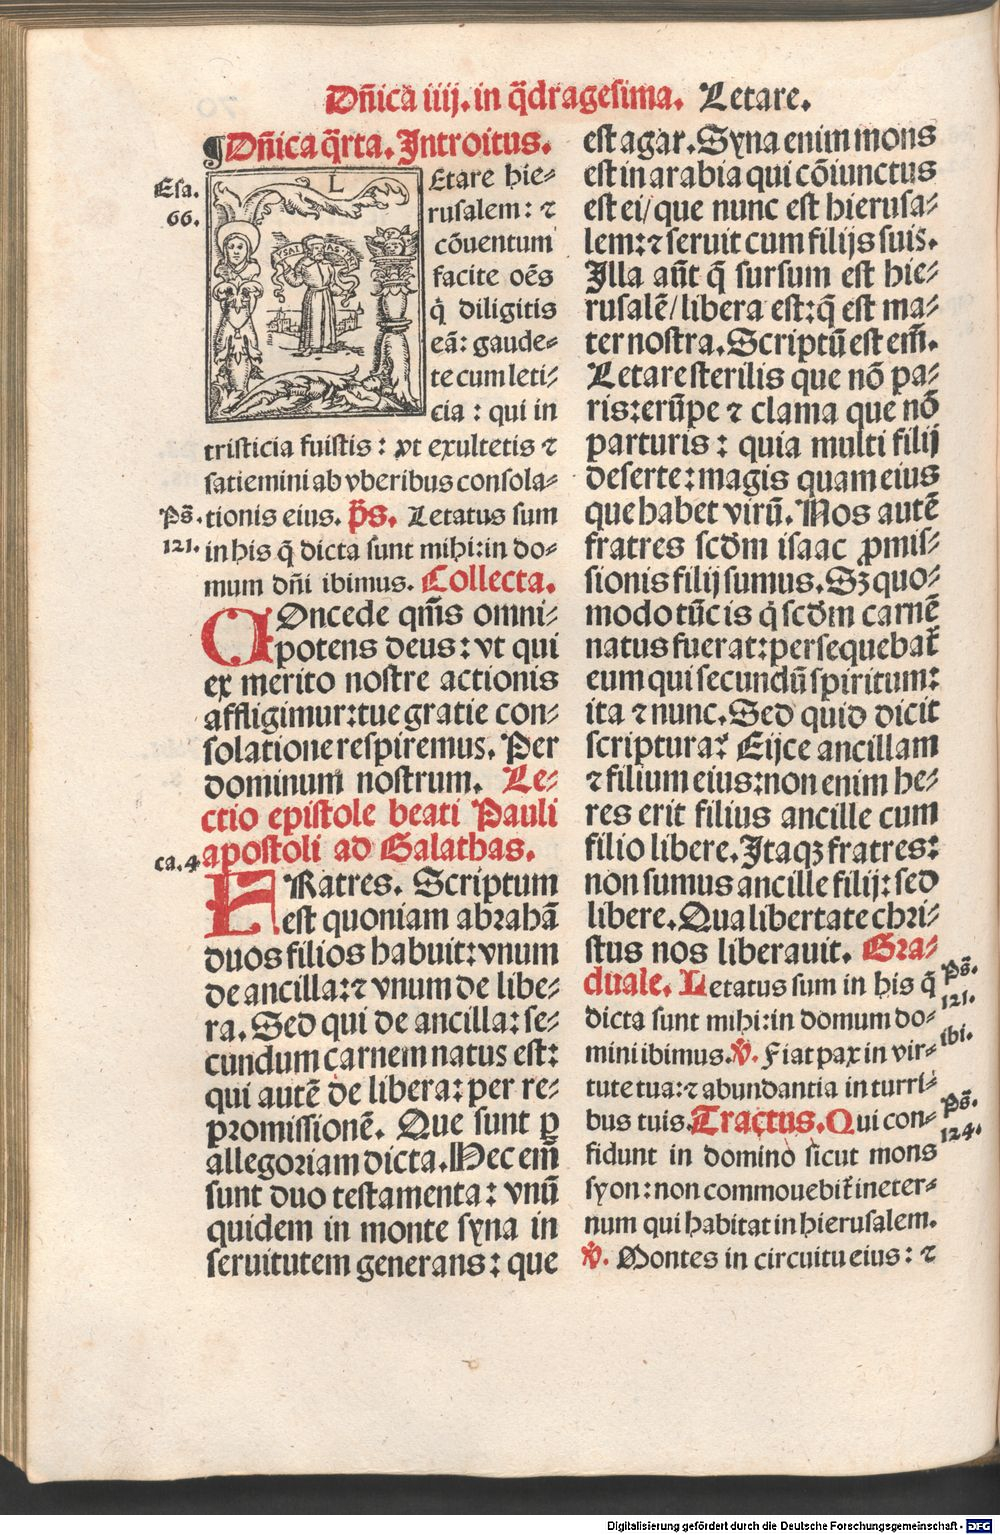 Dn̄ica iiij. in q̄dragesima. Letare.
¶Dn̄ica q̄rta. Introitus.
Esa.
66.
L
YSAIAS.P
Etare hie⸗
rusalem: ⁊
cōuentum
facite oēs
q̇ diligitis
eā: gaude⸗
te cum leti⸗
cia : qui in
tristicia fuistis : vt exultetis ⁊
satiemini ab vberibus consola⸗
tionis eius. p̄s. Letatus sum
Ps̄.
121.
in his q̄ dicta sunt mihi: in do⸗
mum dn̄i ibimus. Collecta.
COncede qm̄s omni⸗
potens deus: vt qui
ex merito nostre actionis
affligimur: tue gratie con⸗
solatione respiremus. Per
dominum nostrum. Le⸗
ctio epistole beati Pauli
apostoli ad Galathas.
ca. 4
FRatres. Scriptum
est quoniam abrahā
duos filios habuit: vnum
de ancilla: ⁊ vnum de libe⸗
ra. Sed qui de ancilla: se⸗
cundum carnem natus est:
qui autē de libera: per re⸗
promissionē. Que sunt ꝑ
allegoriam dicta. Hec em̄
sunt duo testamenta: vnū
quidem in monte syna in
seruitutem generans: que
est agar. Syna enim mons
est in arabia qui cōiunctus
est ei/ que nunc est hierusa⸗
lem: ⁊ seruit cum filijs suis.
Illa aūt q̄ sursum est hie⸗
rusalē/ libera est: q̄ est ma⸗
ter nostra. Scriptū est em̄.
Letare sterilis que nō pa⸗
ris: erūpe ⁊ clama que nō
parturis : quia multi filij
deserte: magis quam eius
que habet virū. Nos autē
fratres scd̄m isaac ꝓmis⸗
sionis filij sumus. Sꝫ quo⸗
modo tūc is q̇ scd̄m carnē
natus fuerat: persequebat̄
eum qui secundū spiritum:
ita ⁊ nunc. Sed quid dicit
scriptura? Eijce ancillam
⁊ filium eius: non enim he⸗
res erit filius ancille cum
filio libere. Itaqꝫ fratres:
non sumus ancille filij: sed
libere. Qua libertate chri⸗
stus nos liberauit. Gra⸗
duale. Letatus sum in his q̄
Ps̄.
121.
dicta sunt mihi: in domum do⸗
mini ibimus. ℣. Fiat pax in vir⸗
ibi.
tute tua: ⁊ abundantia in turri⸗
bus tuis. Tractus. Qui con⸗
Ps̄.
124.
fidunt in domino sicut mons
syon: non commouebit̄ in eter⸗
num qui habitat in hierusalem.
℣. Montes in circuitu eius : ⁊
Digitalisierung gefördert durch die Deutsche Forschungsgemeinschaft - DFG